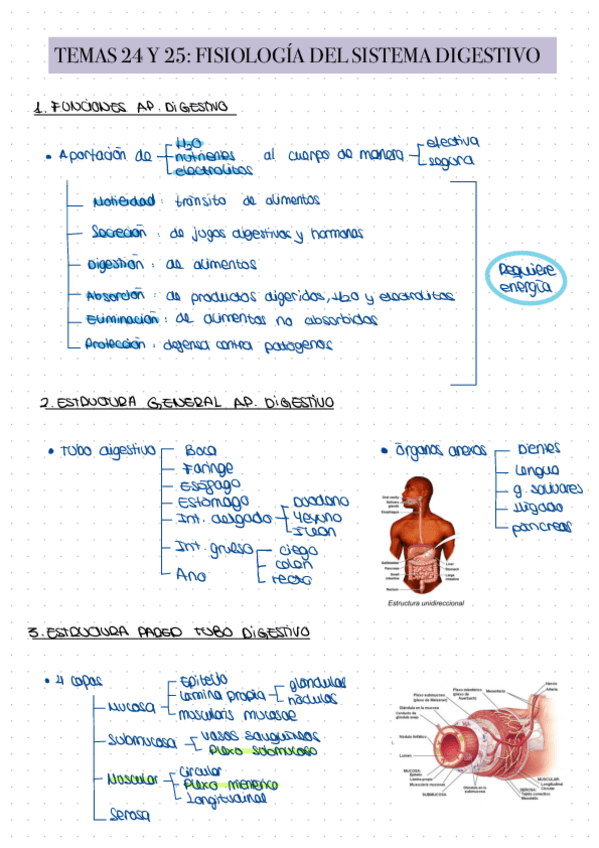 TEMAS 24 Y 25: FISIOLOGÍA DEL SISTEMA DIGESTIVO
1. FUNCIONES AP. DIGESTIVO
• Aportación de H2O nutrientes electrolitos al cuerpo de manera efectiva segura
Motilidad: tránsito de alimentos
Secreción: de jugos digestivos y hormonas
Digestión: de alimentos
Absorción: de productos digeridos, H2O y electrolitos
Eliminación: de alimentos no absorbidos
Protección: defensa contra patógenos
Requiere energía
2. ESTRUCTURA GENERAL AP. DIGESTIVO
• Tubo digestivo
Boca
Faringe
Esófago
Estómago
Int. delgado
Duodeno
Yeyuno
Íleon
Int. grueso
ciego
colon
recto
Ano
• Órganos anexos
Dientes
Lengua
g. salivares
Hígado
pancreas
Oral cavity
Salivary glands
Esophagus
Gallbladder
Pancreas
Small intestine
Rectum
Liver
Stomach
Large intestine
Estructura unidireccional
3. ESTRUCTURA PARED TUBO DIGESTIVO
• 4 capas
Mucosa
Epitelio
Lamina propia
glándulas
nódulos
muscularis mucosae
Submucosa
vasos sanguíneos
Plexo submucoso
Muscular
Circular
Plexo mienterico
Longitudinal
Serosa
Plexo submucoso (plexo de Meissner)
Plexo mientérico (plexo de Auerbach)
Mesenterio
Nervio
Arteria
Glándula en la mucosa
Conducto de glándula
Nódulo linfático
Lumen
MUCOSA:
Epitelio
Lámina propia
Muscularis mucosae
SUBMUCOSA
Glándula en la submucosa
MUSCULAR:
Longitudinal
Circular
SEROSA:
Tejido conectivo
Mesotelio